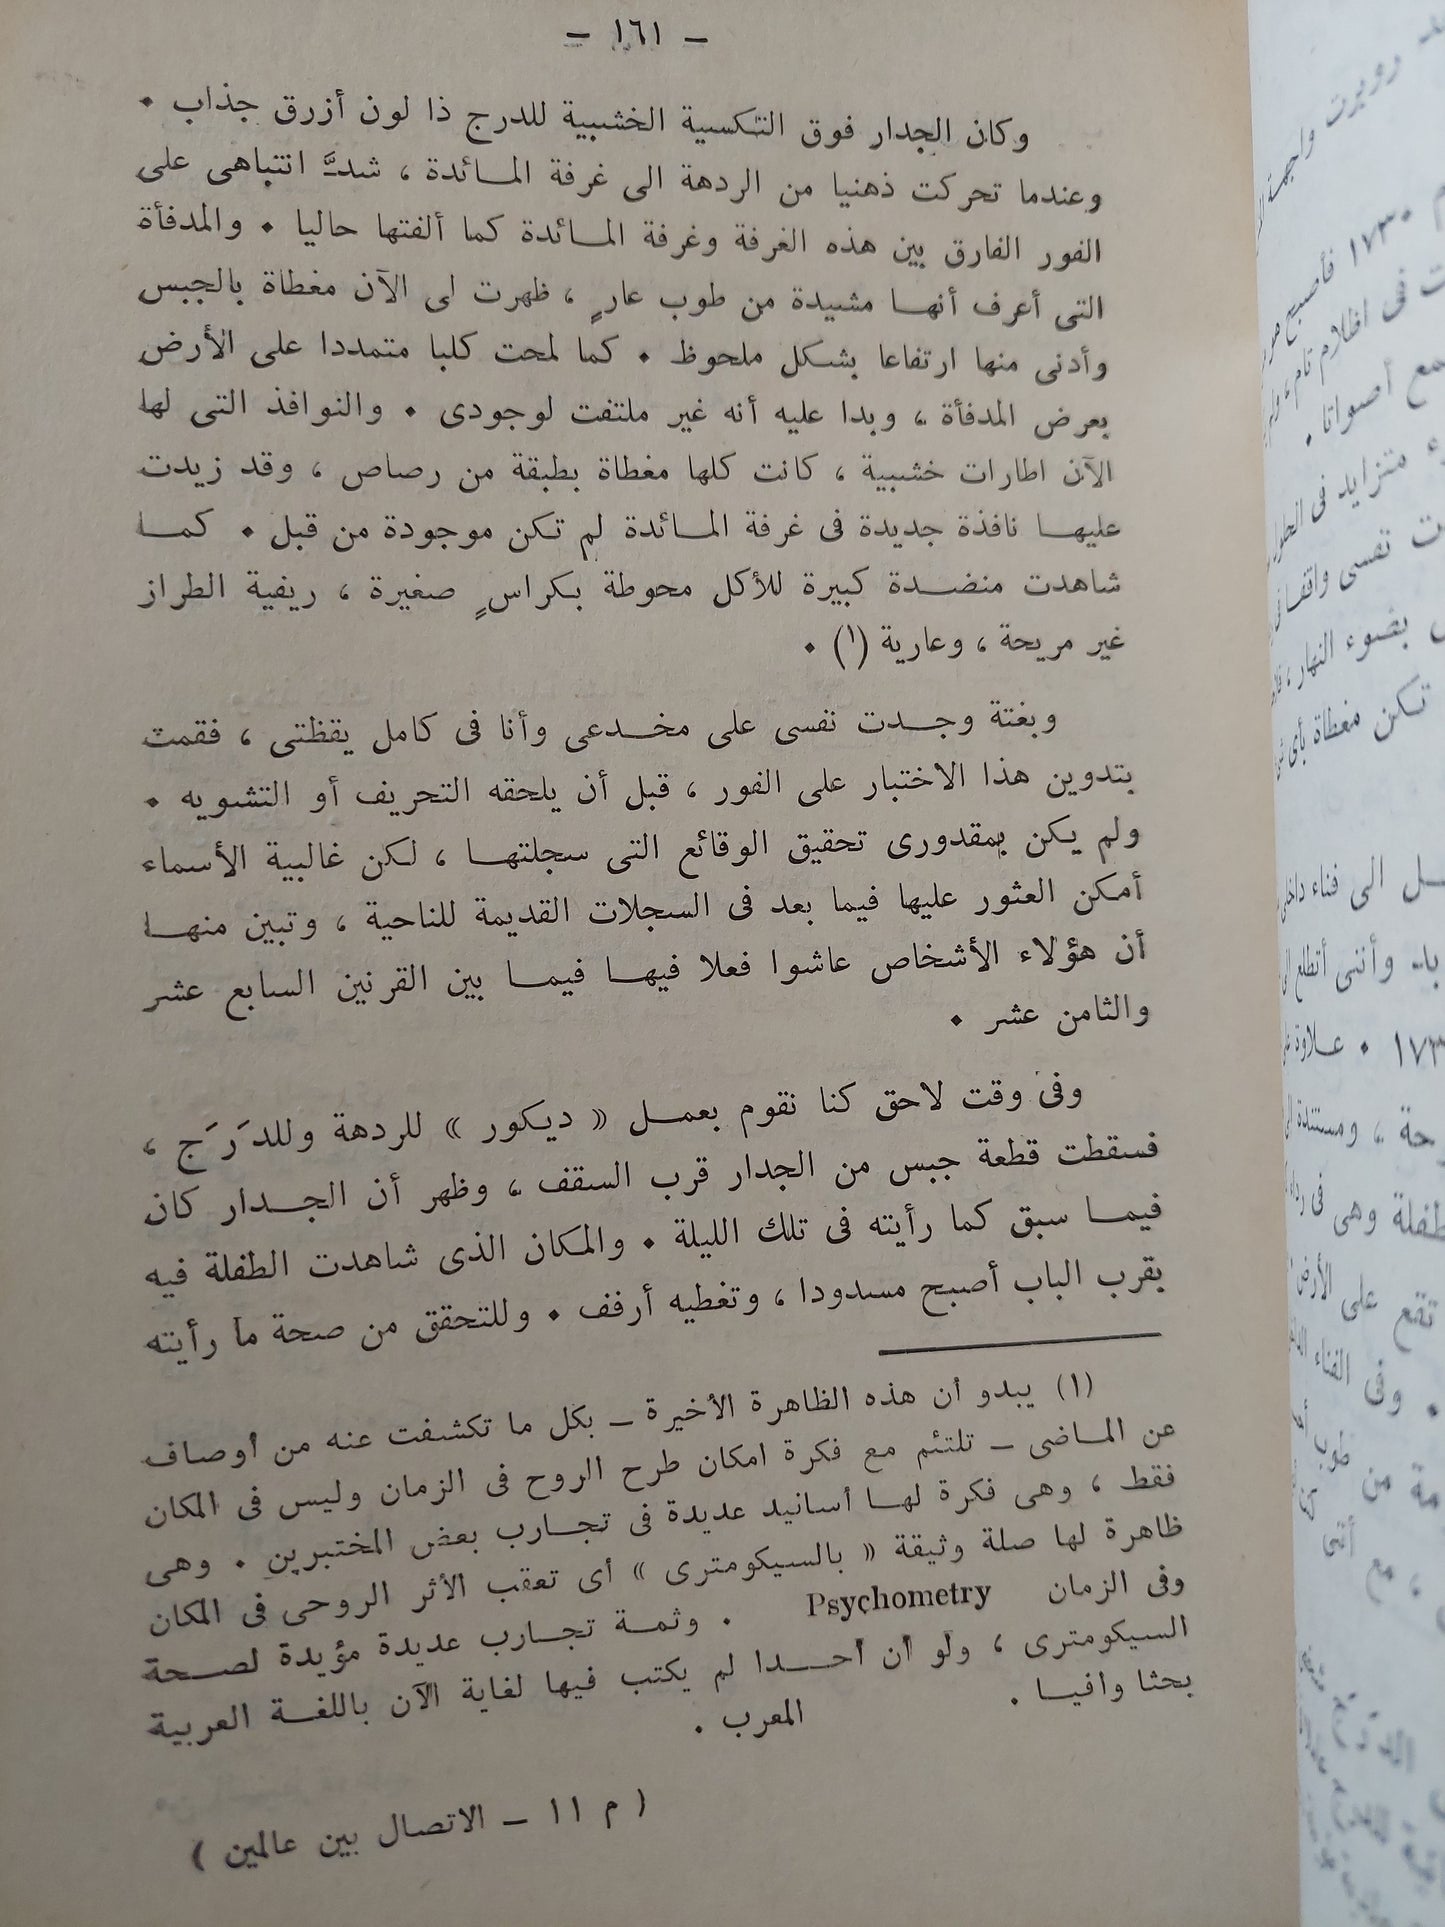 — ١٦١ —
وكان الجدار فوق التكسية الخشبية للدرج ذا لون أزرق جذاب .
وعندما تحركت ذهنيا من الردهة الى غرفة المائدة ، شدَّ انتباهى على
الفور الفارق بين هذه الغرفة وغرفة المائدة كما ألفتها حاليا . والمدفأة
التى أعرف أنها مشيدة من طوب عارٍ ، ظهرت لى الآن مغطاة بالجبس
وأدنى منها ارتفاعا بشكل ملحوظ . كما لمحت كلبا متمددا على الأرض
بعرض المدفأة ، وبدا عليه أنه غير ملتفت لوجودى . والنوافذ التى لها
الآن اطارات خشبية ، كانت كلها مغطاة بطبقة من رصاص ، وقد زيدت
عليها نافذة جديدة فى غرفة المائدة لم تكن موجودة من قبل . كما
شاهدت منضدة كبيرة للأكل محوطة بكراسٍ صغيرة ، ريفية الطراز
غير مريحة ، وعارية (١) .
وبغتة وجدت نفسى على مخدعى وأنا فى كامل يقظتى ، فقمت
بتدوين هذا الاختبار على الفور ، قبل أن يلحقه التحريف أو التشويه .
ولم يكن بمقدورى تحقيق الوقائع التى سجلتها ، لكن غالبية الأسماء
أمكن العثور عليها فيما بعد فى السجلات القديمة للناحية ، وتبين منها
أن هؤلاء الأشخاص عاشوا فعلا فيها فيما بين القرنين السابع عشر
والثامن عشر .
وفى وقت لاحق كنا نقوم بعمل « ديكور » للردهة وللدَرَج ،
فسقطت قطعة جبس من الجدار قرب السقف ، وظهر أن الجدار كان
فيما سبق كما رأيته فى تلك الليلة . والمكان الذى شاهدت الطفلة فيه
بقرب الباب أصبح مسدودا ، وتغطيه أرفف . وللتحقق من صحة ما رأيته
(١) يبدو أن هذه الظاهرة الأخيرة — بكل ما تكشفت عنه من أوصاف
عن الماضى — تلتئم مع فكرة امكان طرح الروح فى الزمان وليس فى المكان
فقط ، وهى فكرة لها أسانيد عديدة فى تجارب بعض المختبرين . وهى
ظاهرة لها صلة وثيقة « بالسيكومترى » أى تعقب الأثر الروحى فى المكان
وفى الزمان Psychometry . وثمة تجارب عديدة مؤيدة لصحة
السيكومترى ، ولو أن أحدا لم يكتب فيها لغاية الآن باللغة العربية
بحثا وافيا .
المعرب .
( م ١١ — الاتصال بين عالمين )